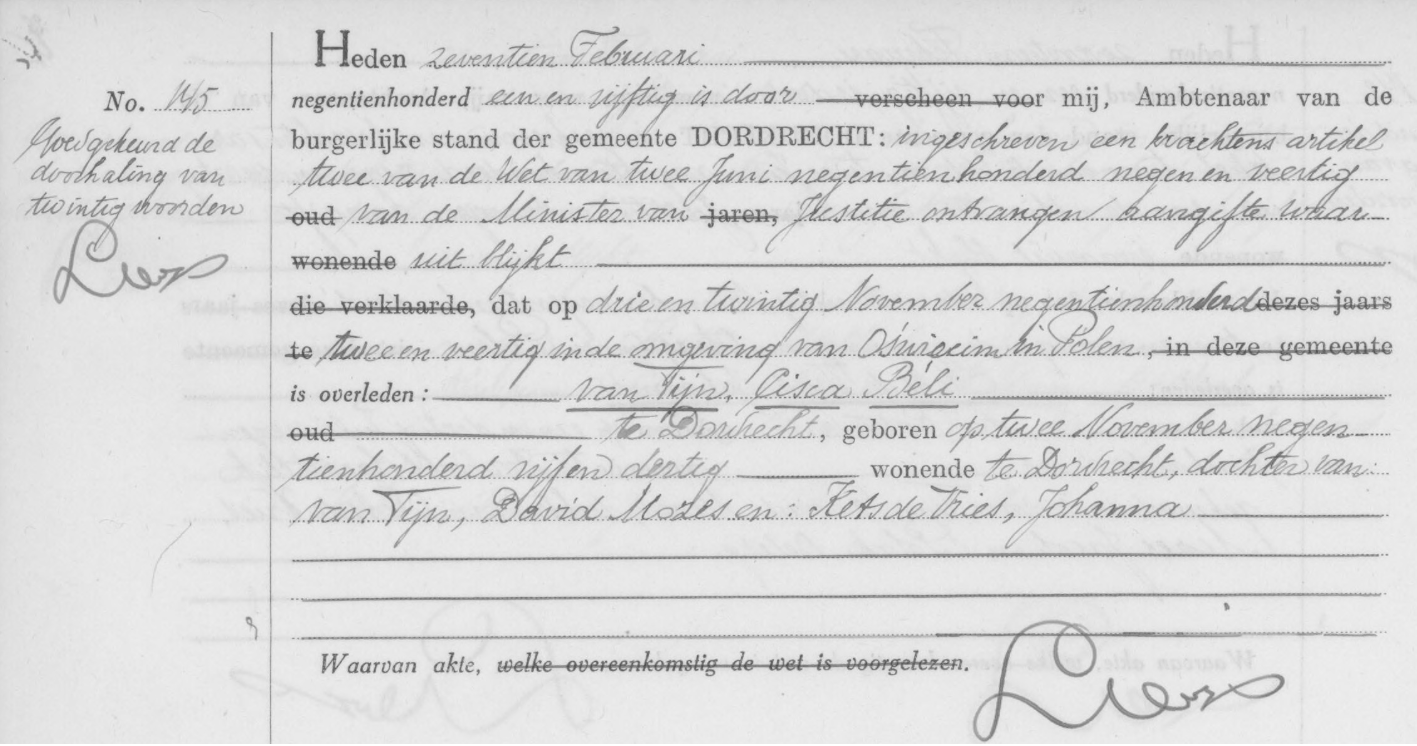 Heden zeventien Februari
No. 145
negentienhonderd een en vijftig is door verscheen voor mij, Ambtenaar van de
Goedgekeurd de
doorhaling van
twintig woorden
burgerlijke stand der gemeente DORDRECHT: ingeschreven een krachtens artikel
twee van de Wet van twee Juni negentienhonderd negen en veertig
oud van de Minister van jaren, Justitie ontvangen aangifte waar-
wonende uit blijkt
die verklaarde, dat op drie en twintig November negentienhonderd dezes jaars
te twee en veertig in de omgeving van Oświęcim in Polen, in deze gemeente
is overleden: van Tijn, Cisca Béli
oud te Dordrecht, geboren op twee November negen-
tienhonderd vijf en dertig wonende te Dordrecht, dochter van:
van Tijn, David Mozes en: Kets de Vries, Johanna
Waarvan akte, welke overeenkomstig de wet is voorgelezen.